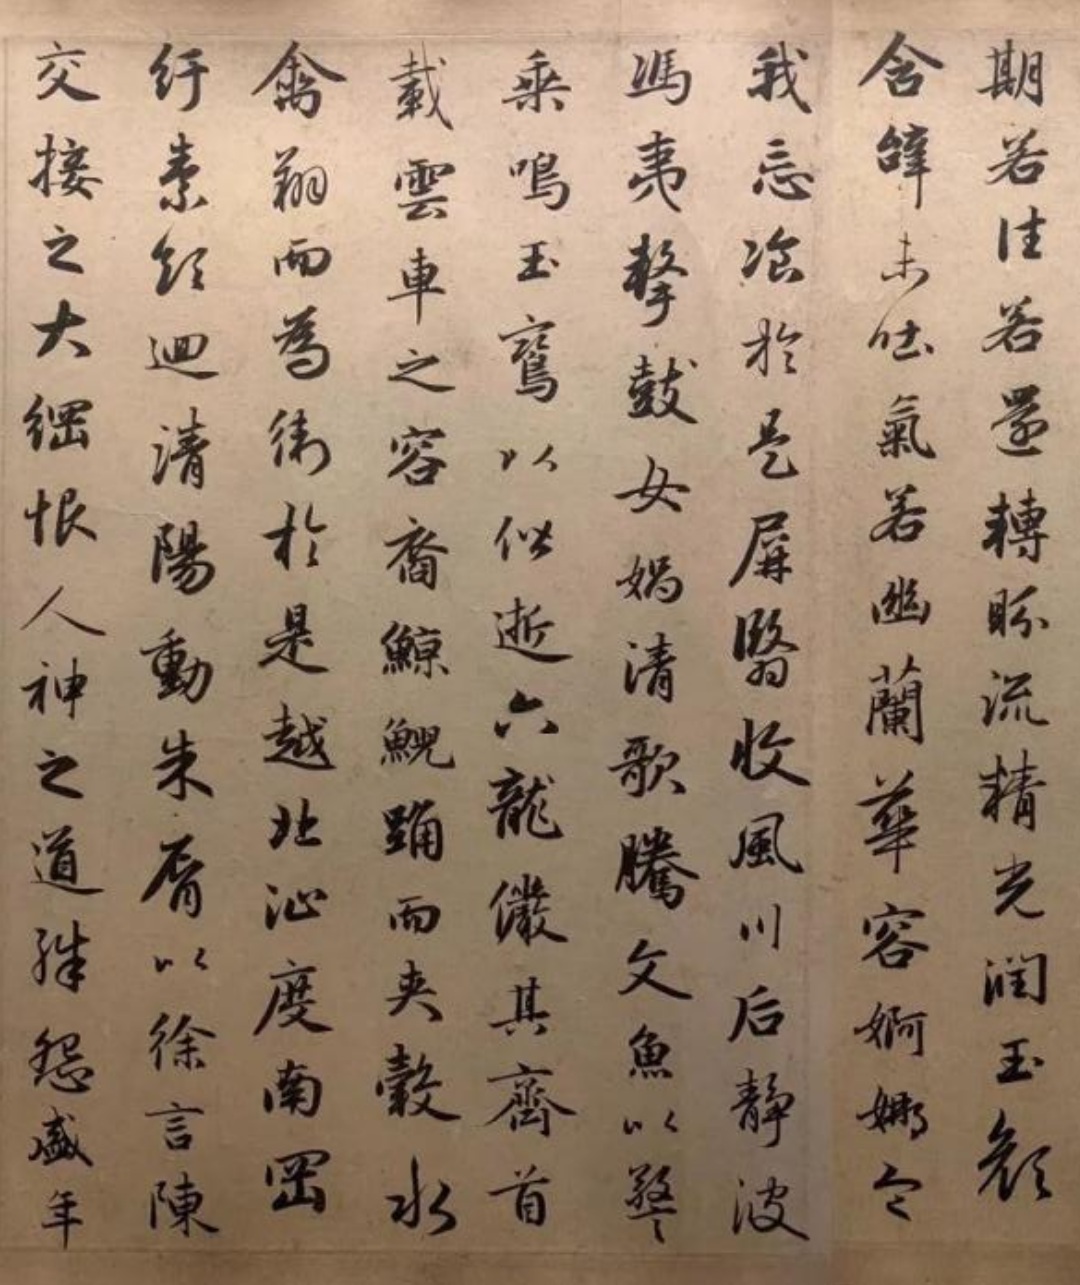 期若往若還轉盼流精光潤玉顏
含辭未吐氣若幽蘭華容婀娜令
我忘飡於是屏翳收風川后靜波
馮夷擊鼓女媧清歌騰文魚以警
乘鳴玉鸞以偕逝六龍儼其齊首
載雲車之容裔鯨鯢踊而夾轂水
禽翔而為衛於是越北沚度南岡
紆素領迴清陽動朱脣以徐言陳
交接之大綱恨人神之道殊怨盛年